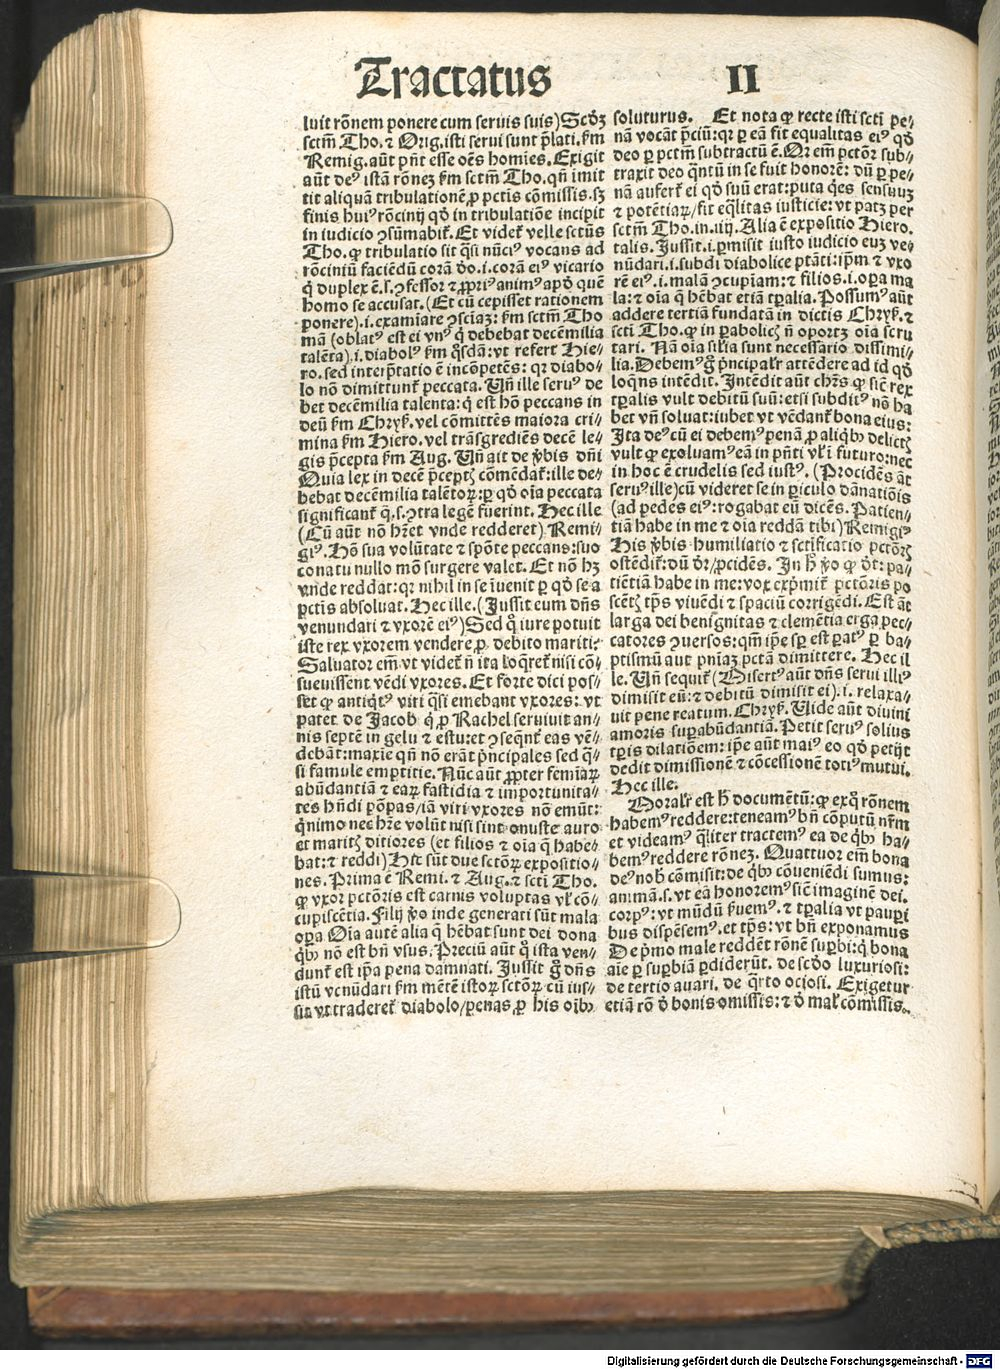 Tractatus II
luit rōnem ponere cum seruis suis) Scdȝ
sctm̄ Tho. ⁊ Orig. isti serui sunt p̄lati. ẜm
Remig. aūt pn̄t esse oēs homies. Exigit
aūt deꝰ istā rōneȝ ẜm sctm̄ Tho. qn̄ imit
tit aliquā tribulationē, ꝓ pctīs cōmissis. sȝ
finis huiꝰ rōcinij qð in tribulatiōe incipit
in iudicio ꝯsūmabit᷑. Et videt᷑ velle sctūs
Tho. ꝙ tribulatio sit q̄si nūciꝰ vocans ad
rōciniū faciēdū corā ðo. i. corā eiꝰ vicario
q̇ duplex ē. s. ꝯfessor ⁊ ꝓpriꝰ animꝰ apð quē
homo se accusat. (Et cū cepisset rationem
ponere) .i. examīare ꝯsciaȝ: ẜm sctm̄ Tho
mā (oblatꝰ est ei vnꝰ q̇ debebat decēmilia
talēta) .i. diabolꝰ ẜm q̄sdā: vt refert Hie-
ro. sed interp̄tatio ē incōpetēs: qꝛ diabo-
lo nō dimittunt᷑ peccata. Un̄ ille seruꝰ de
bet decēmilia talenta: q̇ est hō peccans in
deū ẜm Chryẜ. vel cōmittēs maiora cri-
mina ẜm Hiero. vel trāsgrediēs decē le-
gis p̄cepta ẜm Aug. Un̄ ait de ṽbis dn̄i
Quia lex in decē p̄ceptꝭ cōmēdat᷑: ille de-
bebat decēmilia talētoꝝ: ꝑ qð oīa peccata
significant᷑ q̄. s. ꝯtra legē fuerint. Hec ille
(Cū aūt nō hr̄et vnde redderet) Remi-
giꝰ. Hō sua volūtate ⁊ spōte peccans: suo
conatu nullo mō surgere valet. Et nō hȝ
vnde reddat: qꝛ nihil in se īuenit ꝑ qð se a
pctīs absoluat. Hec ille. (Jussit eum dn̄s
venundari ⁊ vxorē eiꝰ) Sed q̊ iure potuit
iste rex vxorem vendere ꝓ debito mariti:
Saluator em̄ vt videt᷑ n̄ ita loq̄ret᷑ nisi cō-
sueuissent vēdi vxores. Et forte dici pos-
set ꝙ antiq̇tꝰ viri q̄si emebant vxores: vt
patet de Jacob q̇ ꝓ Rachel seruiuit an-
nis septē in gelu ⁊ estu: et ꝯseq̄nt᷑ eas vē-
debāt: maxīe qn̄ nō erāt p̄ncipales sed q̄-
si famule emptitie. Nūc aūt ꝓpter femīaꝝ
abūdantiā ⁊ eaꝝ fastidia ⁊ importunita-
tes hn̄di pōpas/iā viri vxores nō emūt:
q̇nimo nec hr̄e volūt nisi sint onuste auro
et maritꝭ ditiores (et filios ⁊ oīa q̄ habe-
bat: ⁊ reddi) Hic sūt due sctōꝝ expositio-
nes. Prima ē Remi. ⁊ Aug. ⁊ scti Tho.
ꝙ vxor pctōris est carnis voluptas vl᷑ cō-
cupiscētia. Filij ṽo inde generati sūt mala
oꝑa Oīa autē alia q̄ hēbat sunt dei dona
q̇bꝰ nō est bn̄ vsus. Preciū aūt q̊ ista ven-
dunt᷑ est ip̄a pena damnati. Jussit g̊ dn̄s
istū venūdari ẜm mētē istoꝝ sctōꝝ cū ius-
sit vt traderet᷑ diabolo/penas, ꝓ his oībꝰ
soluturus. Et nota ꝙ recte isti scti pe-
nā vocāt p̄ciū: qꝛ ꝑ eā fit equalitas eiꝰ qð
deo ꝑ pctm̄ subtractū ē. Qꝛ em̄ pctōr sub-
traxit deo q̄ntū in se fuit honorē: dū ꝑ pe-
nā aufert᷑ ei qð suū erat: puta q̇es sensuuȝ
⁊ potētiaꝝ/fit eq̄litas iusticie: vt patȝ per
sctm̄ Tho. in .iiij. Alia ē expositio Hiero.
talis. Jussit .i. ꝑmisit iusto iudicio euȝ ve-
nūdari .i. subdi diabolice ptāti: ip̄m ⁊ vxo
rē eiꝰ .i. malā ꝯcupīam: ⁊ filios .i. oꝑa ma
la: ⁊ oīa q̄ hēbat etiā tꝑalia. Possumꝰ aūt
addere tertiā fundatā in dictis Chryẜ. ⁊
scti Tho. ꝙ in ꝑabolicꝭ n̄ oportȝ oīa scru
tari. Nā oīa sil᷑ia sunt necessario dissimi-
lia. Debemꝰ g̊ p̄ncipal᷑r attēdere ad id qð
loq̄ns intēdit. Intēdit aūt chr̄s ꝙ sic̄ rex
tꝑalis vult debitū suū: etsi subditꝰ nō ha
bet vn̄ soluat: iubet vt vēdant᷑ bona eius:
Ita deꝰ cū ei debemꝰ penā ꝓ aliq̇bꝰ delictꝭ
vult ꝙ exoluamꝰ eā in pn̄ti vl᷑ ī futuro: nec
in hoc ē crudelis sed iustꝰ. (Procidēs āt
seruꝰ ille) cū videret se in ꝑiculo dānatiōis
(ad pedes eiꝰ: rogabat eū dicēs. Patien-
tiā habe in me ⁊ oīa reddā tibi) Remigiꝰ
His ṽbis humiliatio ⁊ sctificatio pctōrꝭ
ostēdit᷑: dū dr̄/ꝓcidēs. In h̄ ṽo ꝙ dr̄: pa-
tiētiā habe in me: vox exp̄mit᷑ pctōris po
scētꝭ tp̄s viuēdi ⁊ spaciū corrigēdi. Est āt
larga dei benignitas ⁊ clemētia erga pec-
catores ꝯuersos: qm̄ ip̄e sp̄ est ꝑatꝰ ꝑ ba-
ptismū aut pnīaȝ pctā dimittere. Hec il
le. Un̄ sequit᷑ (Misertꝰ aūt dn̄s serui illiꝰ
dimisit eū: ⁊ debitū dimisit ei) .i. relaxa-
uit pene reatum. Chryẜ. Uide aūt diuini
amoris suꝑabūdantiā. Petit seruꝰ solius
tꝑis dilatiōem: ip̄e aūt maiꝰ eo qð petijt
dedit dimissionē ⁊ cōcessionē totiꝰ mutui.
Hec ille.
Moral᷑r est h̄ documētū: ꝙ exq̊ rōnem
habemꝰ reddere: teneamꝰ bn̄ cōputū nr̄m
et videamꝰ q̄liter tractemꝰ ea de q̇bꝰ ha-
bemꝰ reddere rōneȝ. Quattuor em̄ bona
deꝰ nob̄ cōmisit: de q̇bꝰ cōueniēdi sumus:
animā. s. vt eā honoremꝰ sic̄ imaginē dei.
corpꝰ: vt mūdū ẜuemꝰ. ⁊ tꝑalia vt pauꝑi
bus dispēsemꝰ. et tp̄s: vt bn̄ exponamus
De p̄mo male reddēt rōnē suꝑbi: q̇ bona
aīe ꝑ suꝑbiā ꝑdiderūt. de scðo luxuriosi:
de tertio auari. de q̄rto ociosi. Exigetur
etiā rō ð bonis omissis: ⁊ ð mal᷑ cōmissis.
Digitalisierung gefördert durch die Deutsche Forschungsgemeinschaft - DFG